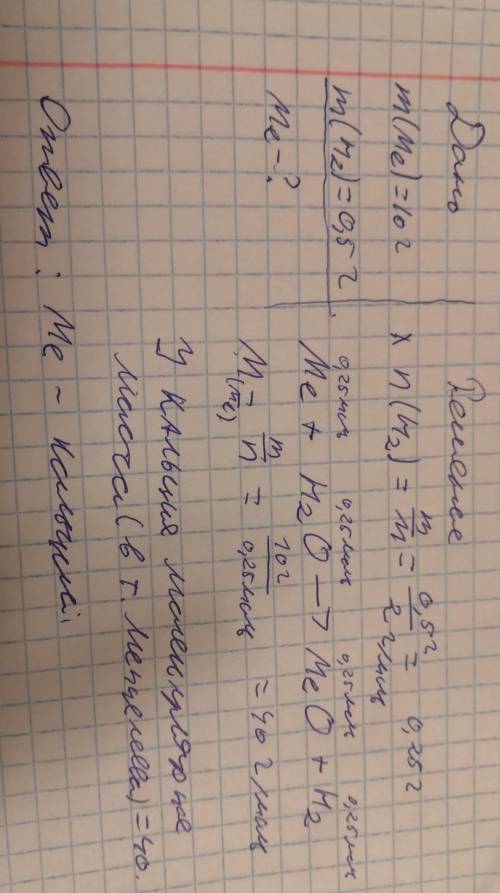 Дано
m(Me)=10г
m(H₂)=0,5г
Me-?
Решение
x n(H₂) = m/M = 0,5г/2г/моль = 0,25г
0,25моль 0,25моль 0,25моль 0,25моль
Me + H₂O → MeO + H₂
M(Me) = m/n = 10г/0,25моль = 40г/моль
У кальция молекулярная
масса (в т. Менделеева) = 40.
Ответ: Me - кальций.